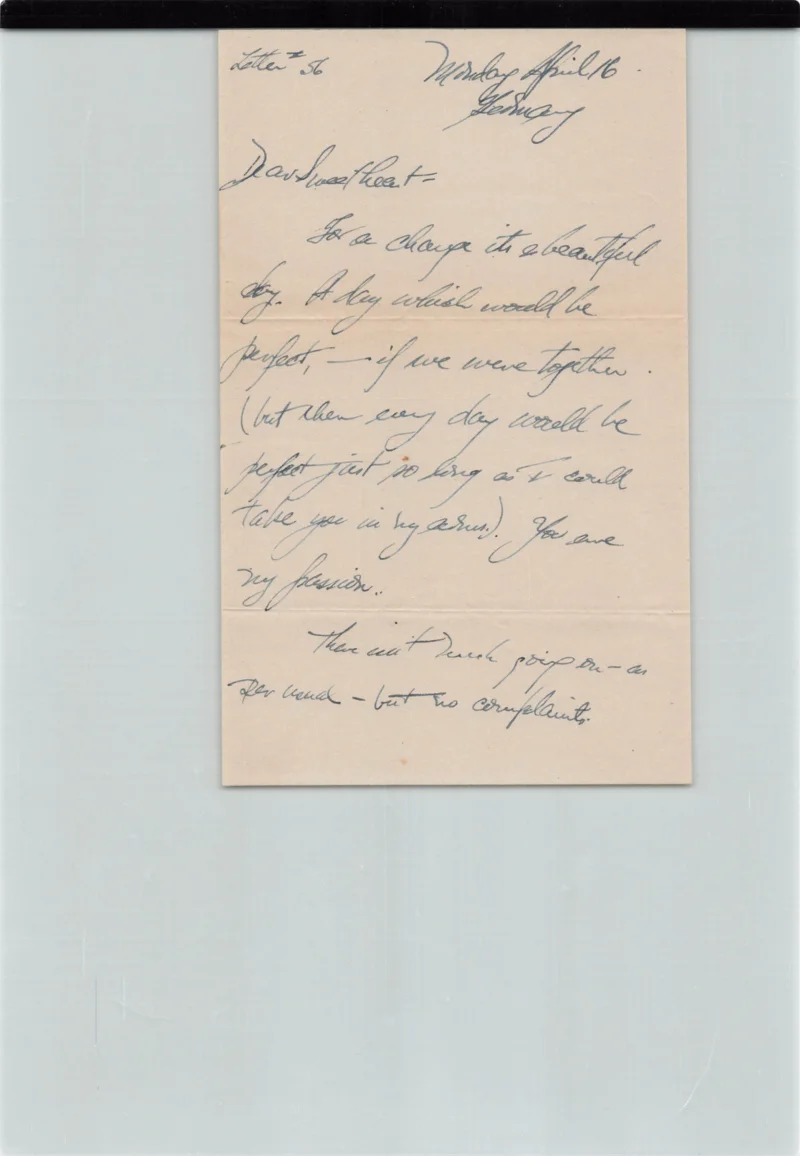 Letter # 56
Monday April 16
Germany
Dear Sweetheart -
For a change it's a beautiful
day. A day which would be
perfect, — if we were together.
(but then every day would be
perfect just so long as I could
take you in my arms). You are
my passion.
There isn't much going on - as
per usual - but no complaints.